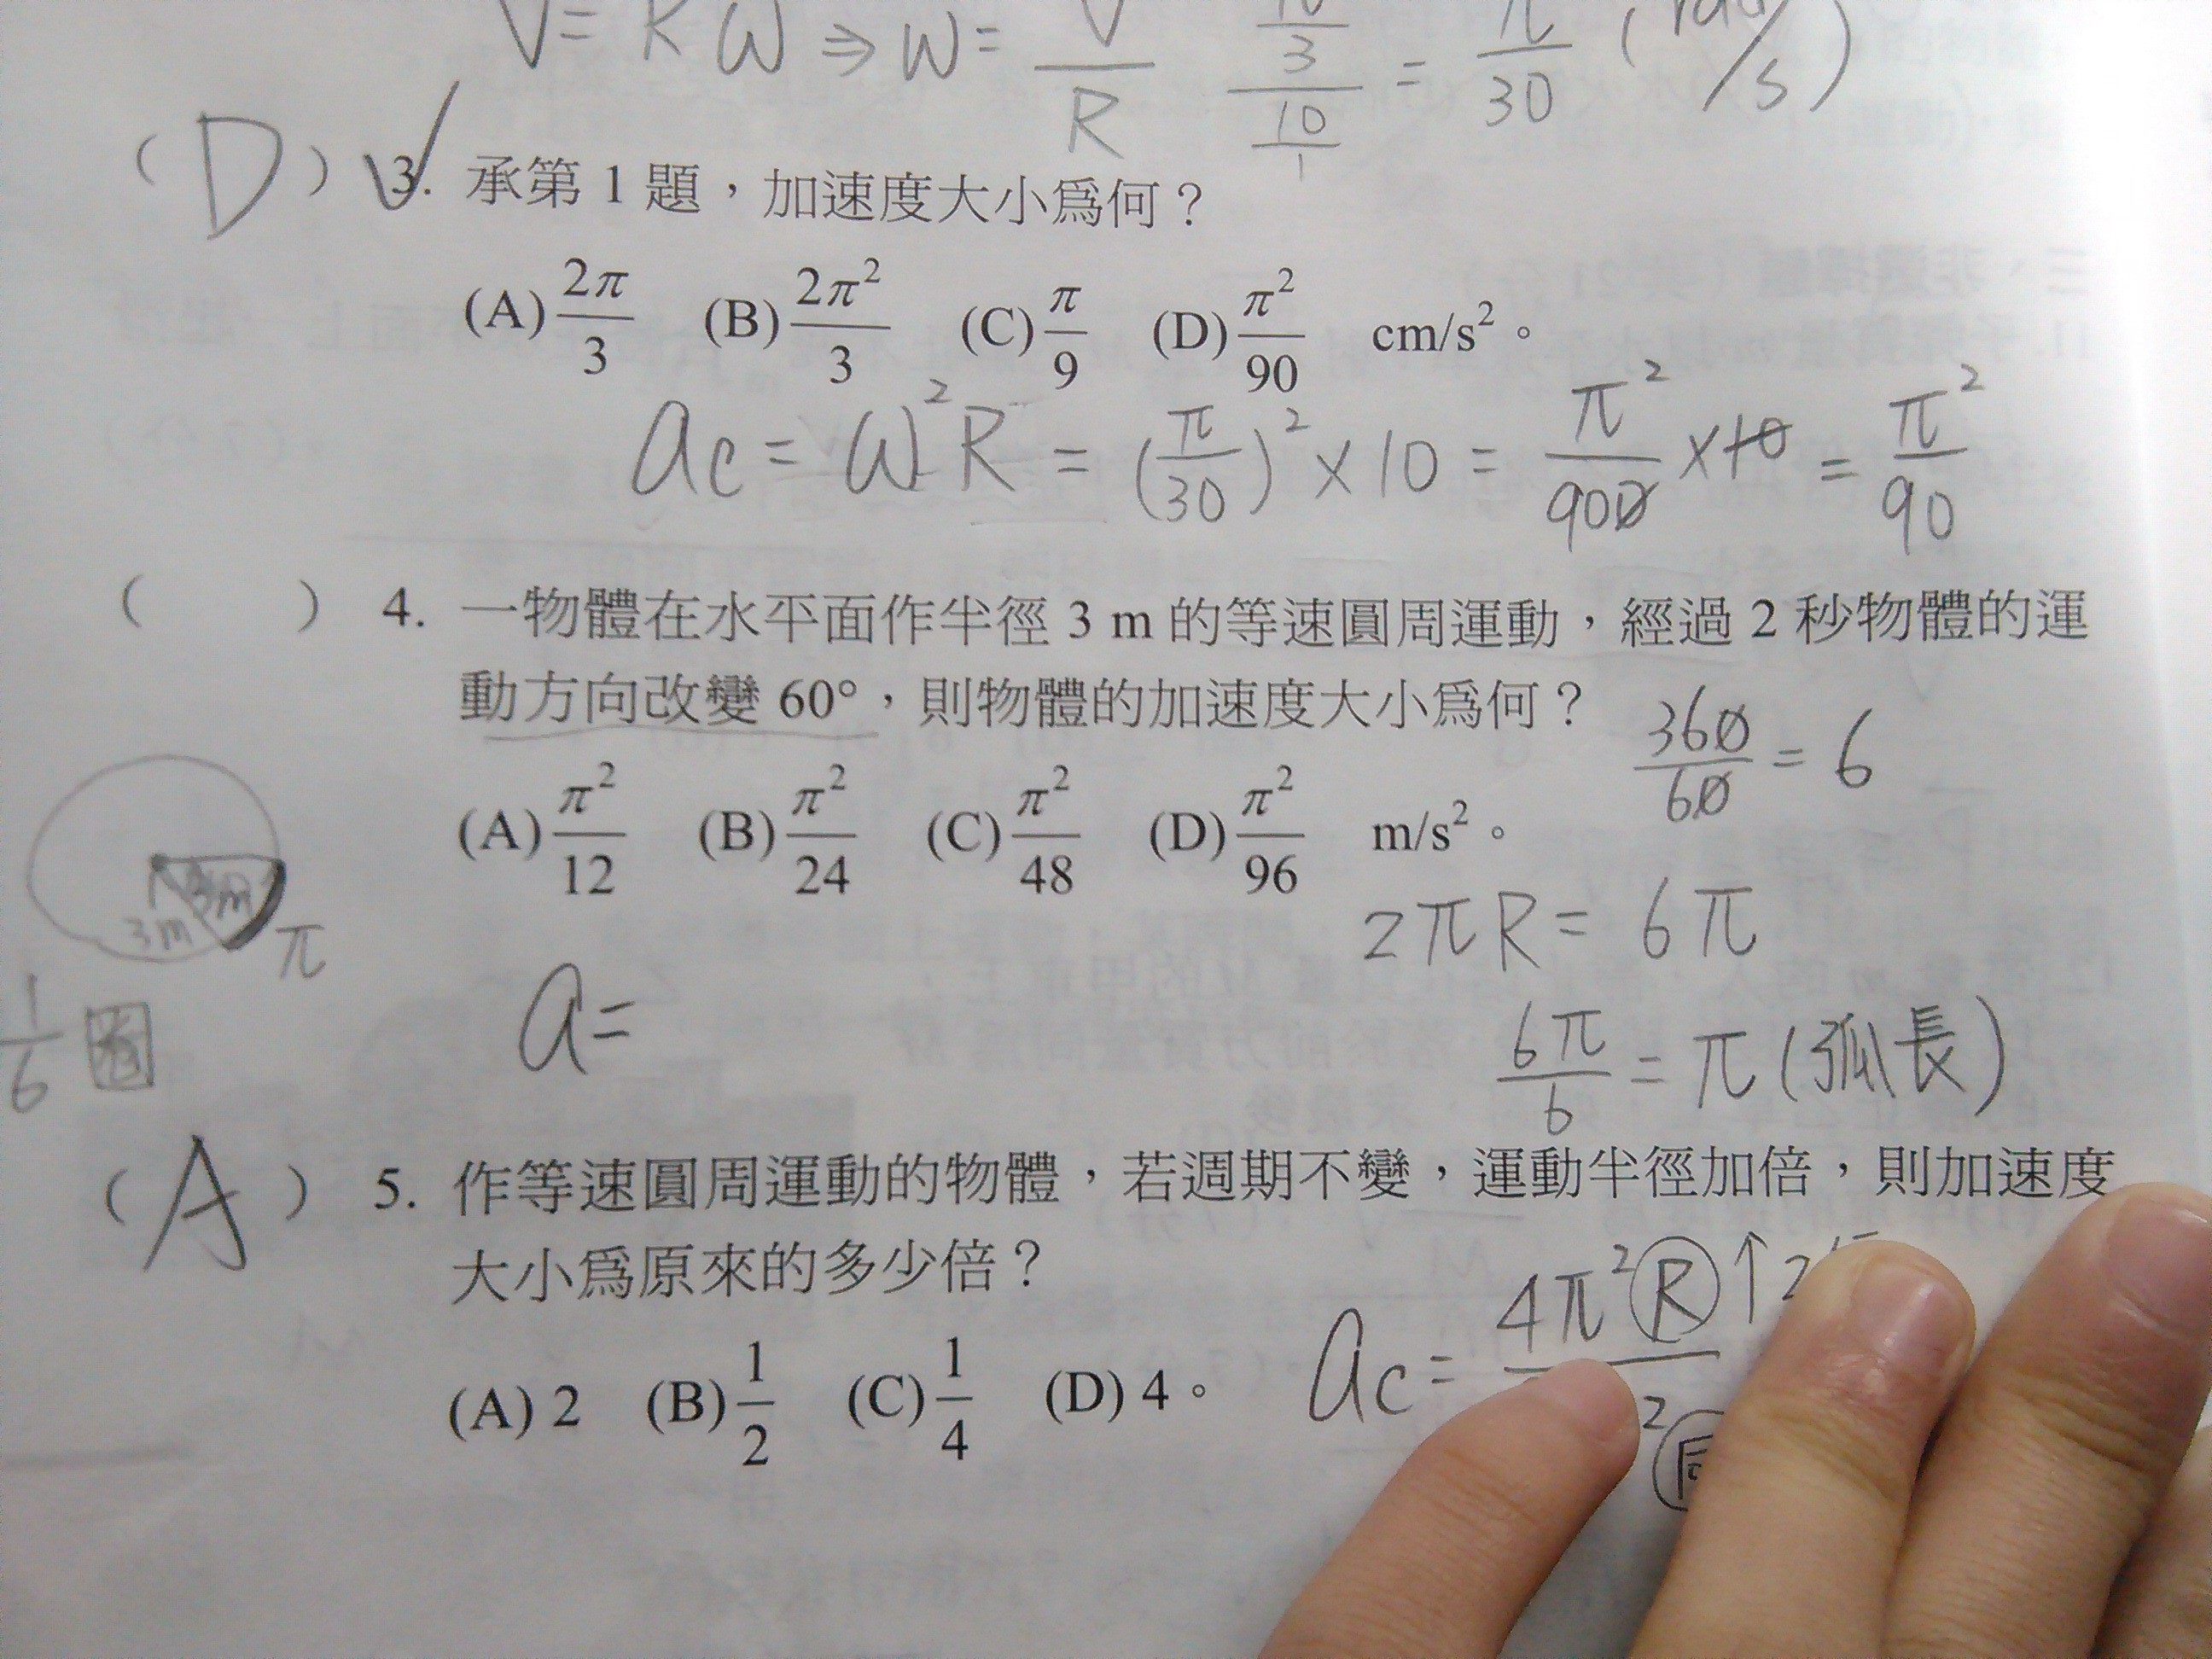 V = Rω ⇒ ω = V/R (10/3)/(10/1) = π/30 (rad/s)
( D ) 3. 承第 1 題，加速度大小為何？
(A) 2π/3 (B) 2π²/3 (C) π/9 (D) π²/90 cm/s²。
ac = ω²R = (π/30)² × 10 = π²/900 × 10 = π²/90
( ) 4. 一物體在水平面作半徑 3 m 的等速圓周運動，經過 2 秒物體的運
動方向改變 60°，則物體的加速度大小為何？
360/60 = 6
(A) π²/12 (B) π²/24 (C) π²/48 (D) π²/96 m/s²。
3m 3m π
2πR = 6π
1/6 圈
a =
6π/6 = π (弧長)
( A ) 5. 作等速圓周運動的物體，若週期不變，運動半徑加倍，則加速度
大小為原來的多少倍？
(A) 2 (B) 1/2 (C) 1/4 (D) 4。
ac = 4π²R ↑2
2 同